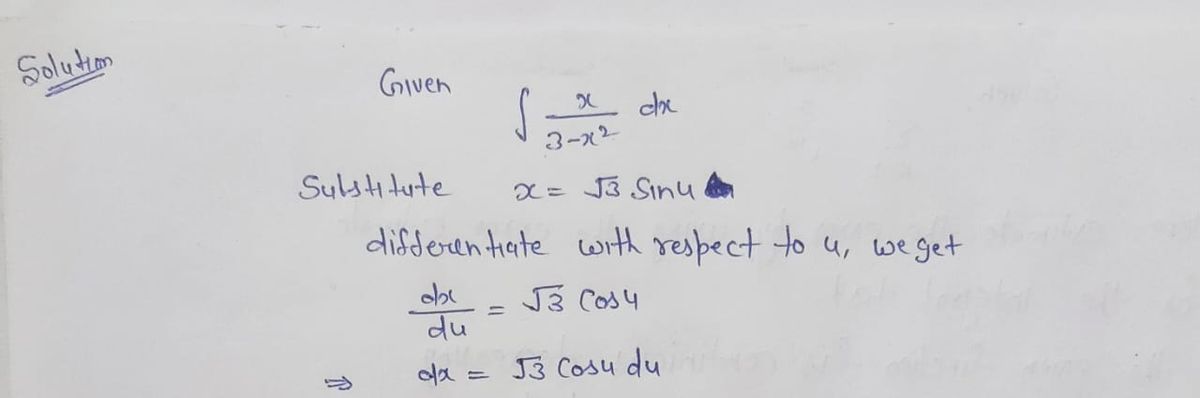 Solution
Given
∫ x/(3-x²) dx
Substitute x = √3 Sinu
differentiate with respect to u, we get
dx/du = √3 Cosu
⇒ dx = √3 Cosu du